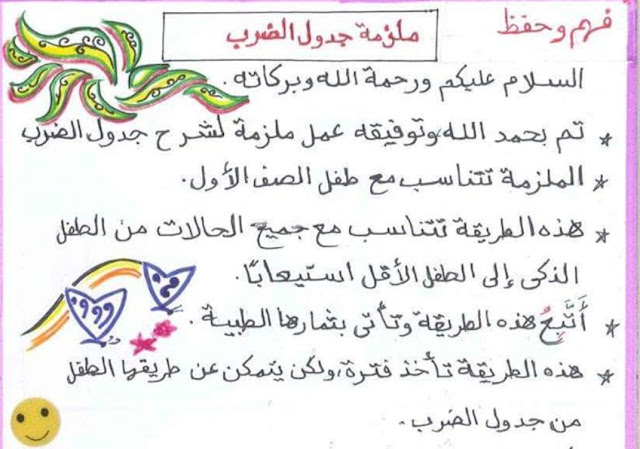 فهم وحفظ
ملزمة جدول الضرب
السلام عليكم ورحمة الله وبركاته.
* تم بحمد الله وتوفيقه عمل ملزمة لشرح جدول الضرب
* الملزمة تتناسب مع طفل الصف الأول.
* هذه الطريقة تتناسب مع جميع الحالات من الطفل
الذكى إلى الطفل الأقل استيعابًا.
* أَتَّبِعُ هذه الطريقة وتأتى بثمارها الطيبة.
* هذه الطريقة تأخذ فترة، ولكن يتمكن عن طريقها الطفل
من جدول الضرب.